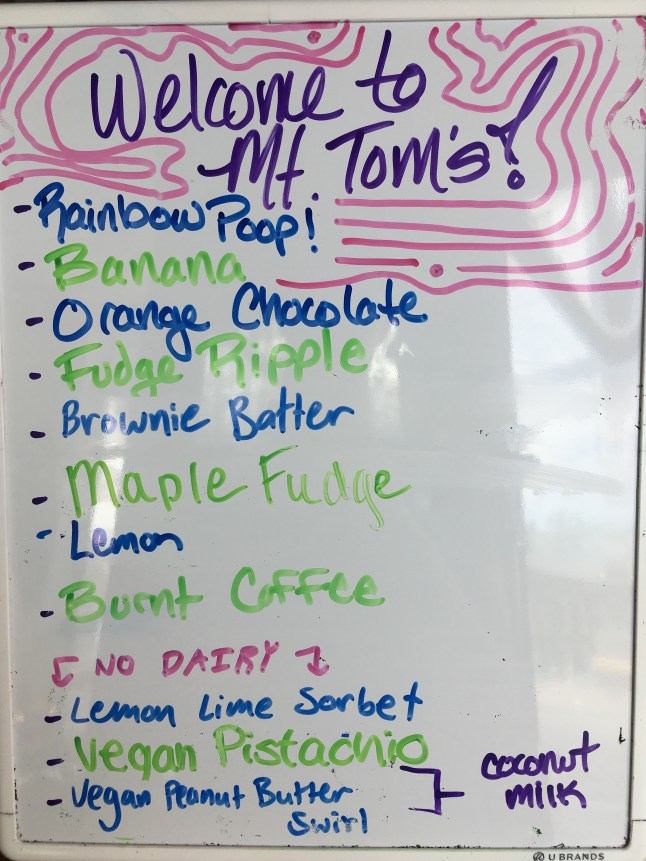 Welcome to
Mt. Tom's!
- Rainbow Poop!
- Banana
- Orange Chocolate
- Fudge Ripple
- Brownie Batter
- Maple Fudge
- Lemon
- Burnt Coffee
↓ NO DAIRY ↓
- Lemon Lime Sorbet
- Vegan Pistachio
- Vegan Peanut Butter
Swirl
coconut
milk
U BRANDS